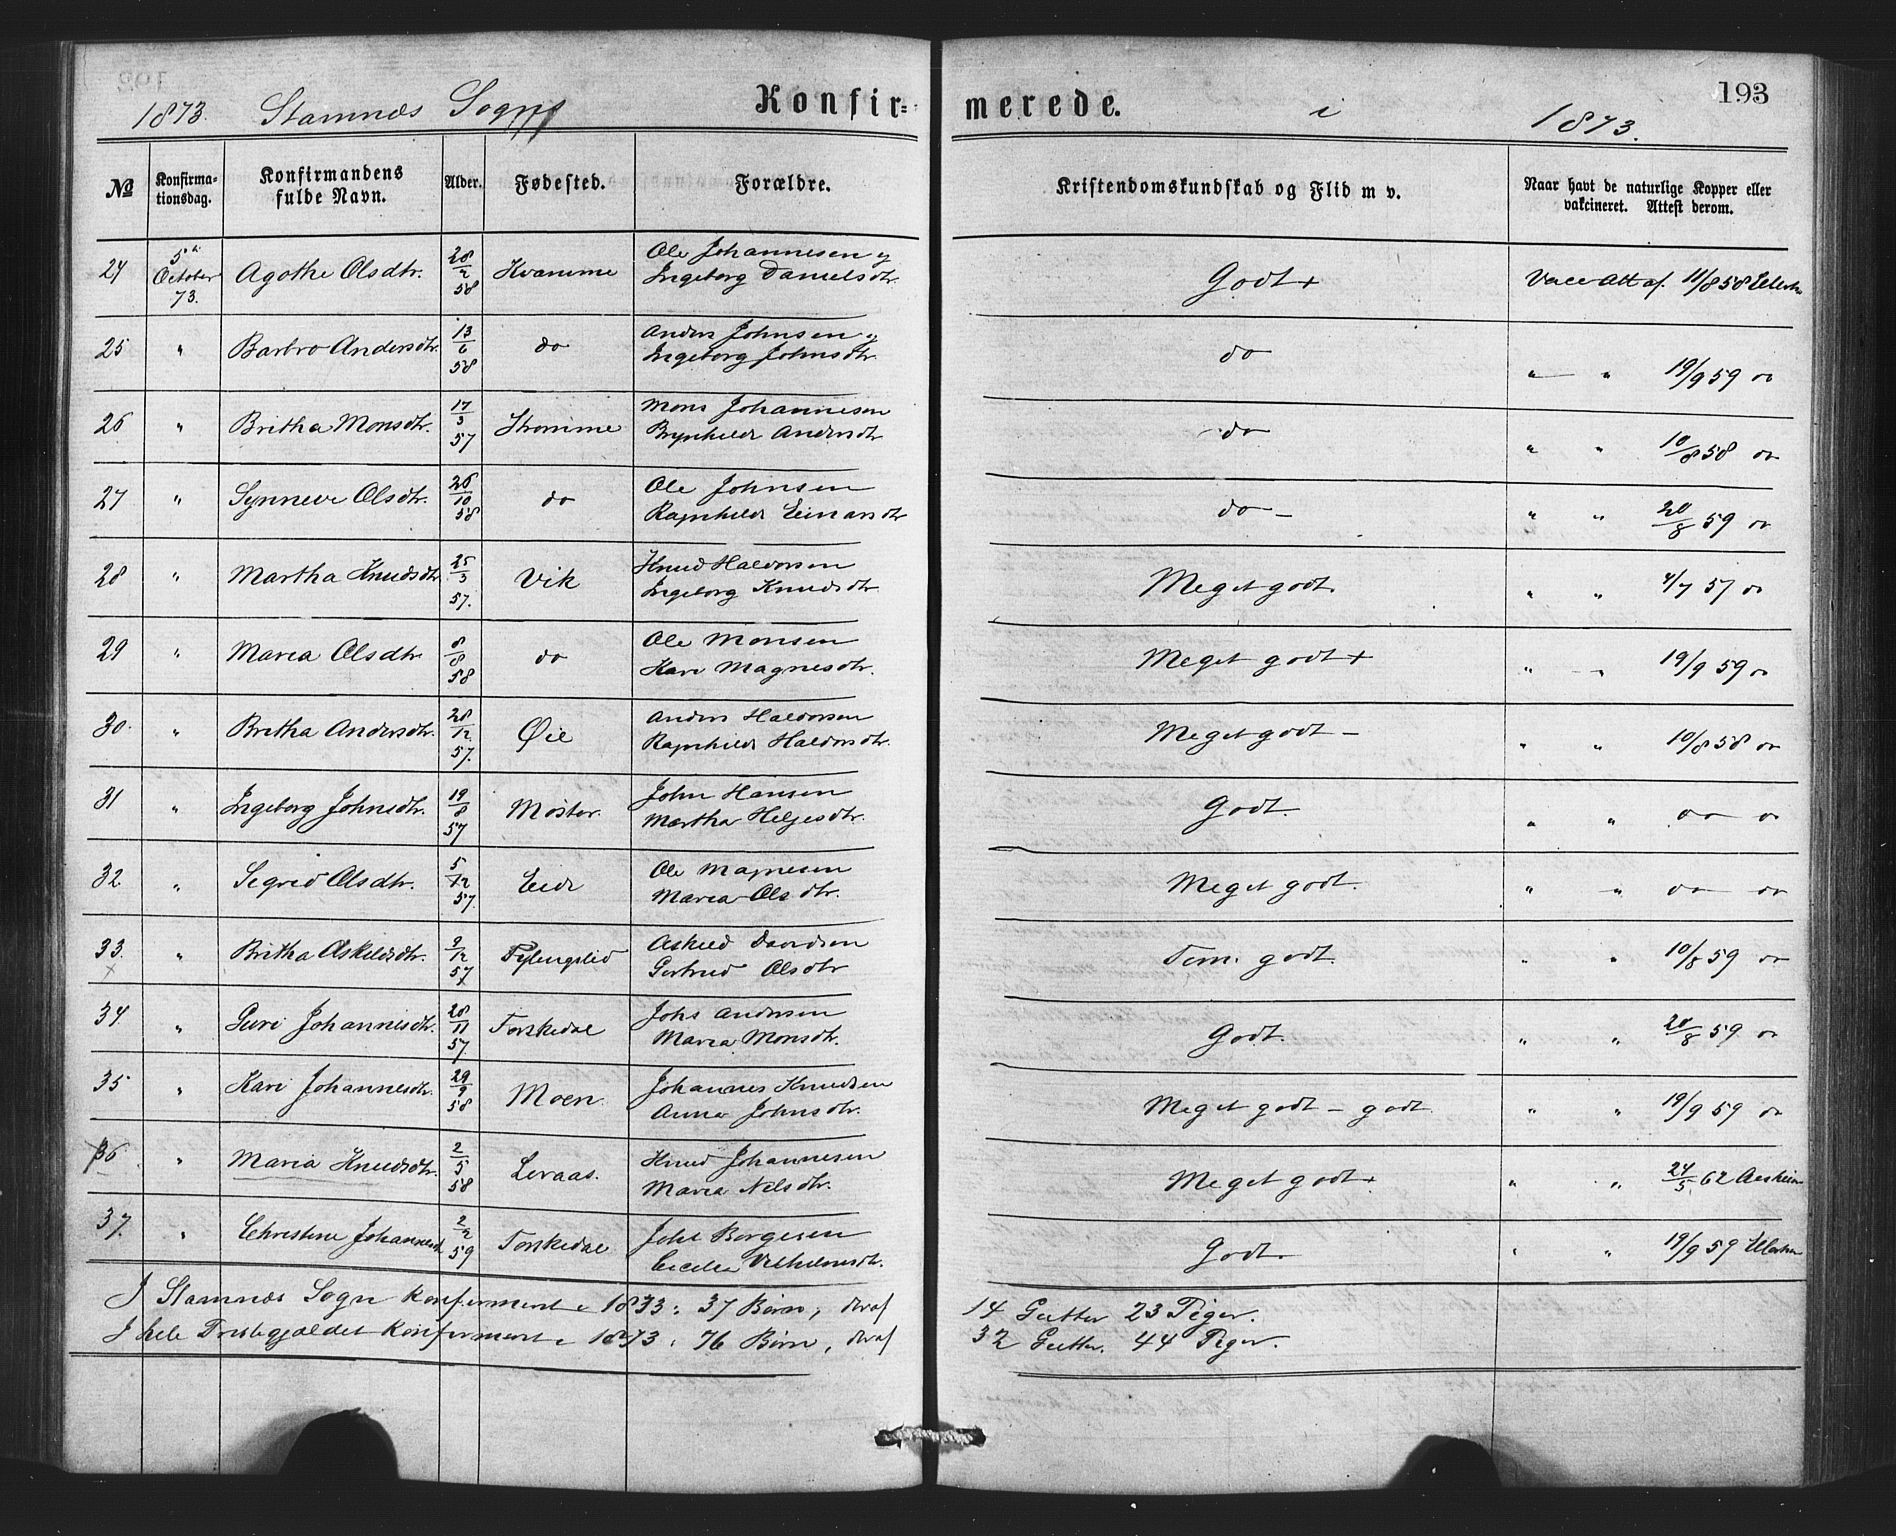 193
1873. Stamnæs Sogn Konfirmerede. i 1873.
№ Konfirmationsdag. Konfirmandens fulde Navn. Alder. Fødested. Forældre. Kristendomskundskab og Flid m v. Naar havt de naturlige Kopper eller vakcineret. Attest derom.
24 5te October 73. Agothe Olsdtr. 28/2 58 Kvamme Ole Johannesen og Ingeborg Danielsdtr. Godt + Vacc Att af. 11/8 58
25 " Barbro Andersdtr. 13/6 58 do Anders Johnsen og Ingeborg Johnsdtr. do " " 19/9 59 do
26 " Britha Monsdtr. 17/3 57 Stramme Mons Johannesen Brynhild Andersdtr do " " 10/8 58 do
27 " Synneve Olsdtr. 26/10 58 do Ole Johnsen Ragnhild Einarsdtr do - " " 20/8 59 do
28 " Martha Knudsdtr 25/3 57. Vik Knud Haldorsen Ingeborg Knudsdtr Meget godt. " " 4/7 57 do
29 " Maria Olsdtr 8/8 58 do Ole Monsen Kari Magnesdtr. Meget godt + " " 19/9 59 do
30. " Britha Andersdtr. 28/12 57. Øie Anders Haldorsen Ragnhild Haldorsdtr. Meget godt - " " 10/8 58 do
31 " Ingeborg Johnsdtr. 19/8 57 Moster. John Hansen Martha Helgesdtr. Godt. " " do do
32 " Sigrid Olsdtr. 5/12 57. Eide Ole Magnesen Maria Olsdtr. Meget godt. " " do do
33. " Britha Askeldsdtr. 9/12 57 Fylingslid Askeld Davidsen Gertrud Olsdtr Tem. godt. " " 10/8 59 do
34 " Guri Johannesdtr. 28/11 57. Forskedal Johs Andersen Maria Monsdtr. Godt. " " 20/8 59 do
35 " Kari Johannesdtr. 29/9 58 Moen Johannes Knudsen Anna Johnsdtr. Meget godt - godt " " 19/9 59 do
36 " Maria Knudsdtr. 2/5 58 Leraas. Knud Johannesen Maria Nelsdtr. Meget godt + " " 24/5 62
37. " Christine Johannesd 2/2 59 Forskedal Johs Børgesen Cecilia Vilhelmsdtr. Godt. " " 19/9 59
I Stamnæs Sogn konfirmeret i 1873: 37 Børn, deraf 14 Gutter 23 Piger.
I hele Præstegjældet konfirmeret i 1873: 76 Børn, deraf 32 Gutter. 44 Piger.